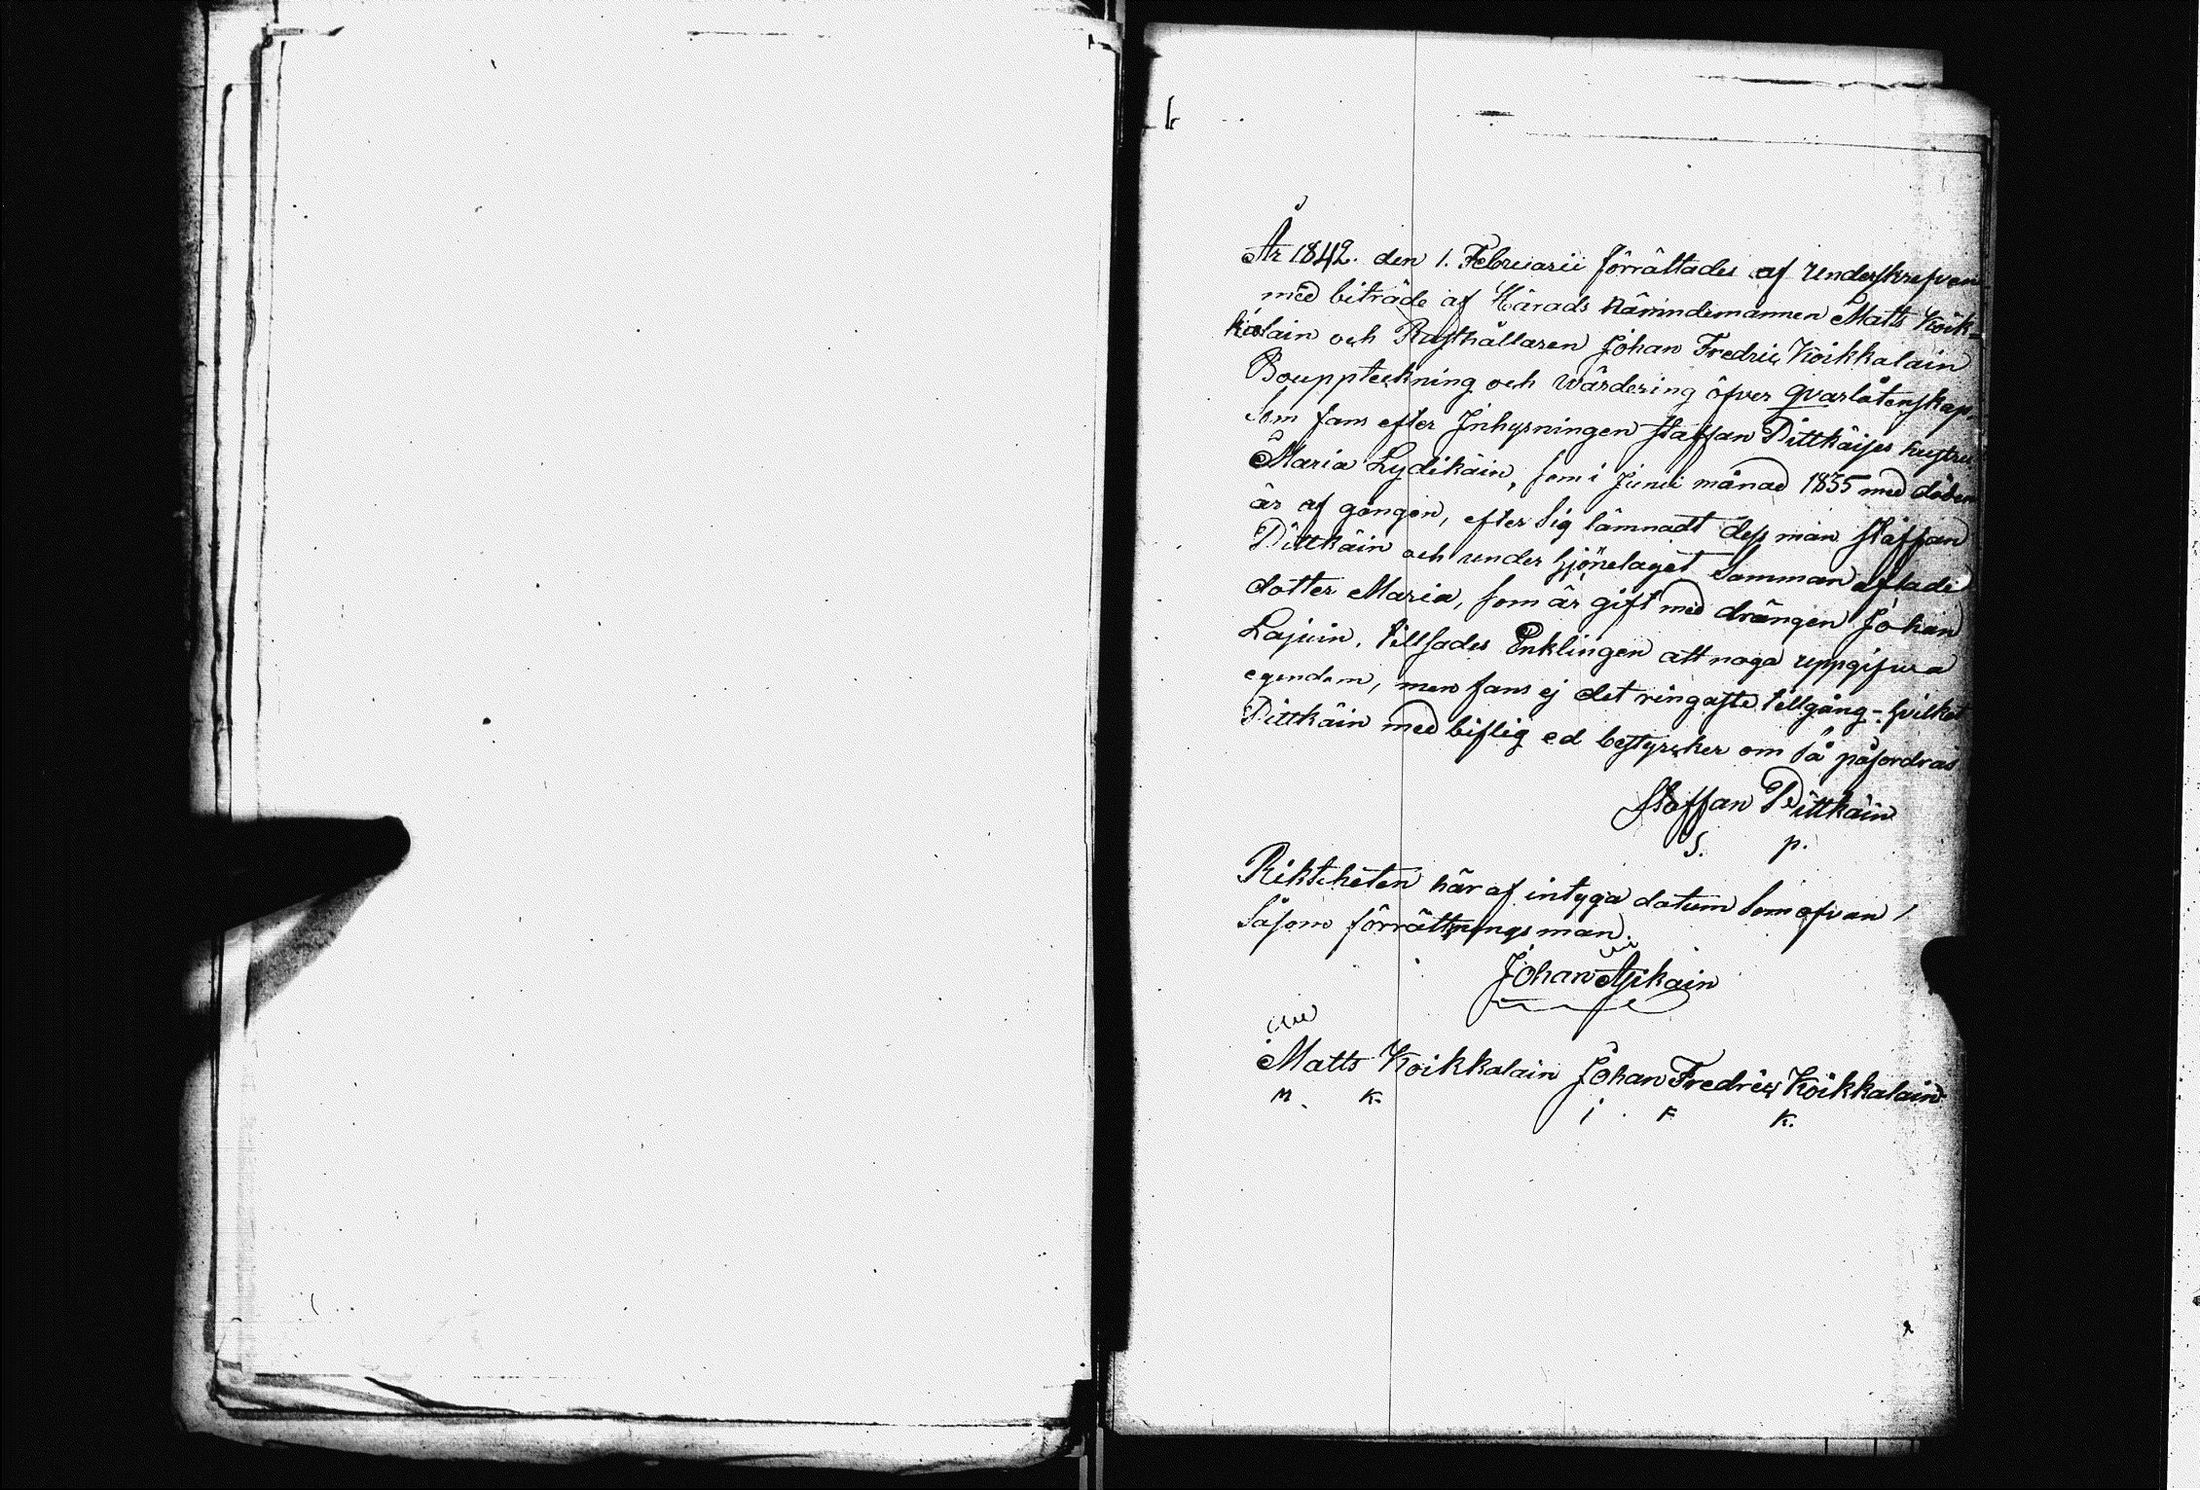 År 1842. den 1. Februarii förrättades af Underskrefven
med biträde af Härads Nämndemannen Matts Koik-
kalain och Rusthållaren Johan Fredric Koikkalain
Bouppteckning och Wärdering öfver Qvarlåtenskap,
Som fans efter Inhysningen Staffan Pittkäises hustru
Maria Lydikäin, som i Junii månad 1835 med döden
är af gången, efter Sig lämnadt dess man Staffan
Pittkäin och under hjönelaget Samman aflade
dotter Maria, som är gift med drängen Johan
Lajuin. tillsades Enklingen att noga uppgifwa
egendom, men fans ej det ringaste tillgång - hvilket
Pittkäin med liflig ed bestyrcker om Så påfordras
Staffan Pittkäin
S. P.
Riktiheten här af intyga datum Som ofvan /
Såsom förrättnings man
Johan
Matts Koikkalain Johan Fredric Koikkalain
M. K. J. F K.